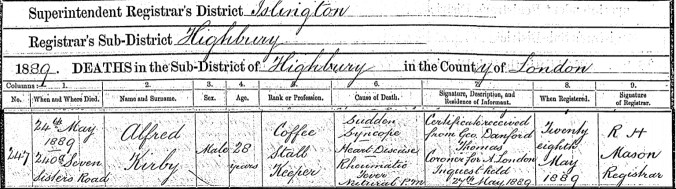 Superintendent Registrar's District Islington
Registrar's Sub-District Highbury
1889. DEATHS in the Sub-District of Highbury in the County of London
Columns:— 1. 2. 3. 4. 5. 6. 7. 8. 9.
No. When and Where Died. Name and Surname. Sex. Age. Rank or Profession. Cause of Death. Signature, Description, and Residence of Informant. When Registered. Signature of Registrar.
247
24th May
1889
240a Seven
Sisters Road
Alfred
Kirby
Male
28
years
Coffee
Stall
Keeper
Sudden
Syncope
Heart Disease
Rheumatic
Fever
Natural P.m.
Certificate received
from Geo. Danford
Thomas
Coroner for N. London
Inquest held
27th May, 1889
Twenty
eighth
May
1889
R H
Mason
Registrar